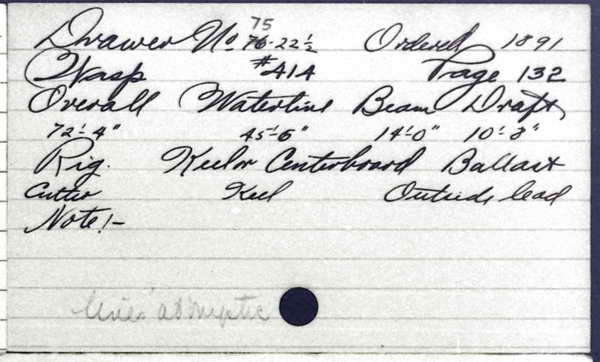 75
Drawer No 76-22½ Ordered 1891
Wasp #414 Page 132
Overall Waterline Beam Draft
72'-4" 45'-6" 14'-0" 10'-3"
Rig. Keel or Centerboard Ballast
Cutter Keel Outside lead
Note!-
lines at Mystic